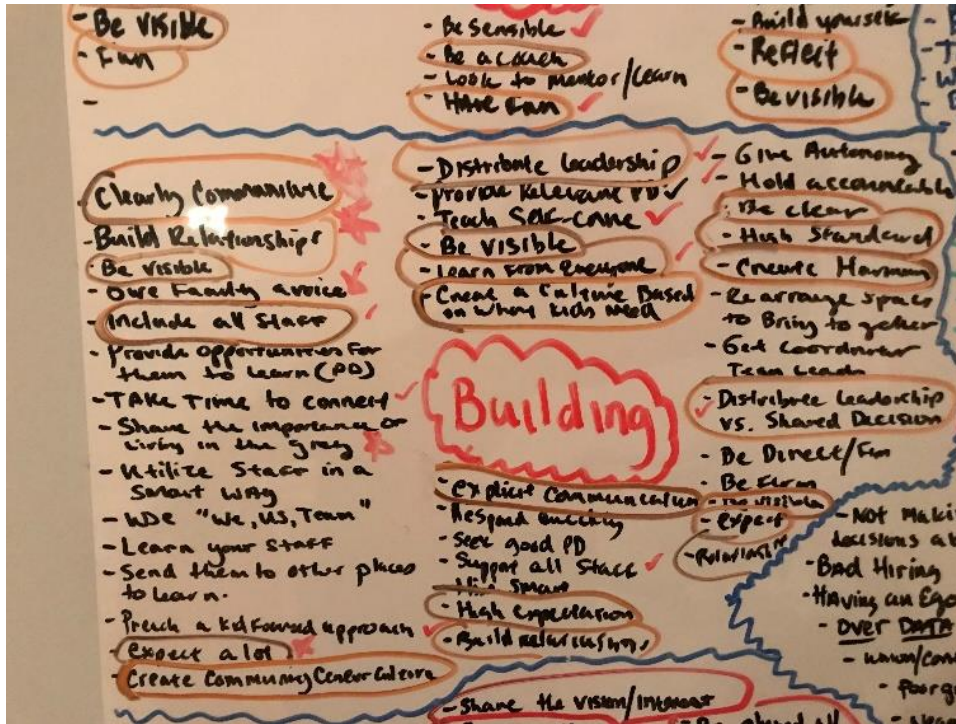 - Be Visible
- Fun
-
- Be Sensible ✓
- Be a coach
- Look to Mentor/Learn
- HAVE Fun ✓
- Build yourself
- Reflect
- Be visible
Clearly Communicate
- Build Relationships
- Be visible
- Give Faculty a voice
- Include all Staff
- Provide opportunities For
them to learn (PD)
- TAKE Time to connect
- Share the importance of
living in the grey
- Utilize Staff in a
Smart WAY
- "We, US, Team"
- Learn your Staff
- Send them to other places
to learn.
- Preach a kid Focused approach
- Expect a lot
- Create Community Center Culture
- Distribute Leadership ✓
- Provide Relevant PD ✓
- Teach Self-
- Be Visible
- Learn From everyone
- Create a Culture Based
on what kids need
Building
- Explicit Communication
- Respond quickly
- Seek good PD
- Support all Staff ✓
- Hire Smart
- High expectation
- Build relationships
- Give Autonomy
- Hold accountable
- Be clear
- High Standard
- Create Harmony
- Rearrange Spaces
to Bring together
- Get Coordinator
Team Leads
- Distribute Leadership
vs. Shared Decision
- Be Direct/
- Be Firm
- Be visible
- expect
- Relationship
- Not Maki
decisions a
- Bad Hiring
- Having an Ego
- OVER DATA
- Share the Vision/Interest